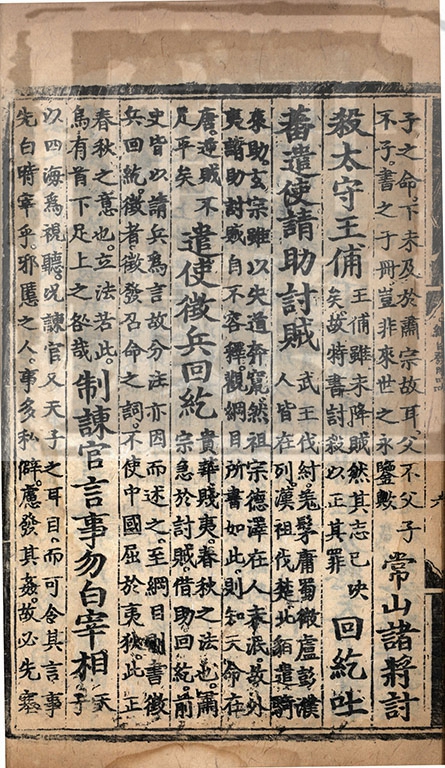 子之命。下未及於肅宗故耳。父不父子
不子。書之于冊豈非來世之永鑒歟
常山諸將討
殺太守王俌
王俌雖未降賊。然其志已決
矣。故特書討殺以正其罪
回紇吐
蕃遣使請助討賊
武王伐紂。羗髳庸蜀微盧彭濮
人皆在列。漢祖伐楚北貊遣騎
來助。玄宗雖以失道奔竄。然祖宗德澤在人未泯。故外
夷請助討賊自不容釋。觀綱目所書如此則知天命在
唐。逆賊不
足平矣
遣使徵兵回紇
貴華賤夷。春秋之法也。肅
宗急於討賊。借助回紇。前
史皆以請兵爲言故分注亦因而述之。至綱目則書徵
兵回紇。徵者徵發召命之詞。不使中國屈於夷狄。此正
春秋之意也。立法若此。
焉有首下足上之咎哉
制諫官言事勿白宰相
天
子
以四海爲視聽。况諫官又天子之耳目。而可令其言事
先白時宰乎。邪慝之人。事多私僻。慮發其姦。故必先窺